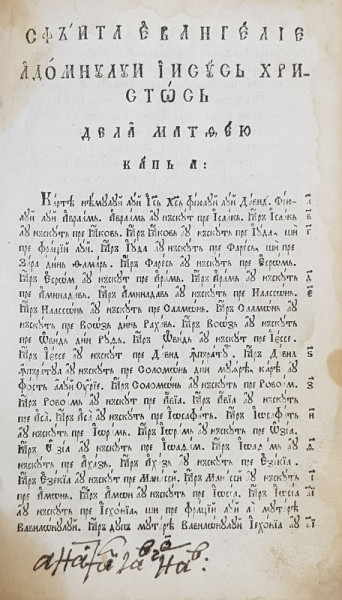 СФѪ҆НТА Є҆ВАНГЕ́ЛІЕ
А҆ДО́МНꙋЛꙋИ І҆ИСꙋ́СЬ ХРИ-
СТѠ́СЬ
ДЕЛА МАТѲЕ́Ю
КАПЬ А:
Ка́рте нѣмꙋлꙋи лꙋи І҆с Хс фїюлꙋи лꙋи Дави́д. Фїю-
лꙋи лꙋи А҆враа́м. А҆враа́мь аꙋ нъскꙋт пре І҆саа́кь. І҆аръ І҆саа́кь
аꙋ нъскꙋт пре І҆а́ковь. І҆аръ І҆а́ковь аꙋ нъскꙋт пре І҆ꙋ́да, ши
пре фра́цїй лꙋи. І҆аръ І҆ꙋ́да аꙋ нъскꙋт пре Фаре́сь, ши пре
За́ра динь Ѳама́рь. І҆аръ Фаре́сь аꙋ нъскꙋт пре Є҆сро́мь.
І҆аръ Є҆сро́м аꙋ нъскꙋт пре А҆ра́мь. І҆аръ А҆ра́мь аꙋ нъскꙋть
пре А҆минада́вь. І҆аръ А҆минада́вь аꙋ нъскꙋть пре Наассѡ́нь.
І҆аръ Наассѡ́нь аꙋ нъскꙋть пре Саламѡ́нь. І҆аръ Саламѡ́нь аꙋ
нъскꙋть пре Воѡ́зь динь Раха́вь. І҆аръ Воѡ́зь аꙋ нъскꙋть
пре Ѡ҆ви́дь дин Рꙋ́дь. І҆аръ Ѡ҆ви́дь аꙋ нъскꙋть пре І҆ессе.
І҆аръ І҆ессе аꙋ нъскꙋт пре Дави́д ꙟ҆пъра́тꙋ. І҆аръ Дави́д
ꙟ҆пъра́тꙋл аꙋ нъскꙋть пре Соломѡ́нь дин мꙋѧ́рѣ, ка́ре аꙋ
фо́сть а҆лꙋи Оу҆рі́е. І҆аръ Соломѡ́нь аꙋ нъскꙋть пре Ровоа́м.
І҆аръ Ровоа́мь аꙋ нъскꙋт пре А҆ві́а. І҆аръ А҆ві́а аꙋ нъскꙋть
пре А҆са́. І҆аръ А҆са́ аꙋ нъскꙋть пре І҆ѡсафа́ть. І҆аръ І҆ѡсафа́т
аꙋ нъскꙋть пре І҆ѡра́м. І҆аръ І҆ѡра́м аꙋ нъскꙋть пре Ѻ҆зі́а.
І҆аръ Ѻ҆зі́а аꙋ нъскꙋть пре І҆ѡаѳа́м. І҆аръ І҆ѡаѳа́м аꙋ
нъскꙋть пре А҆ха́зь. І҆аръ А҆ха́зь аꙋ нъскꙋть пре Є҆зекі́а.
І҆аръ Є҆зекі́а аꙋ нъскꙋт пре Манасси. І҆аръ Манассі́й аꙋ нъскꙋть
пре А҆мѡ́нь. І҆аръ А҆мѡ́н аꙋ нъскꙋть пре І҆ѡсі́а. І҆аръ І҆ѡсі́а
аꙋ нъскꙋть пре І҆ехоні́а, ши пре фра́цїй лꙋи ла мꙋта́рѣ
Вавилѡ́нꙋлꙋи. І҆аръ дꙋпъ мꙋта́рѣ Вавилѡ́нꙋлꙋи І҆ехоні́а аꙋ